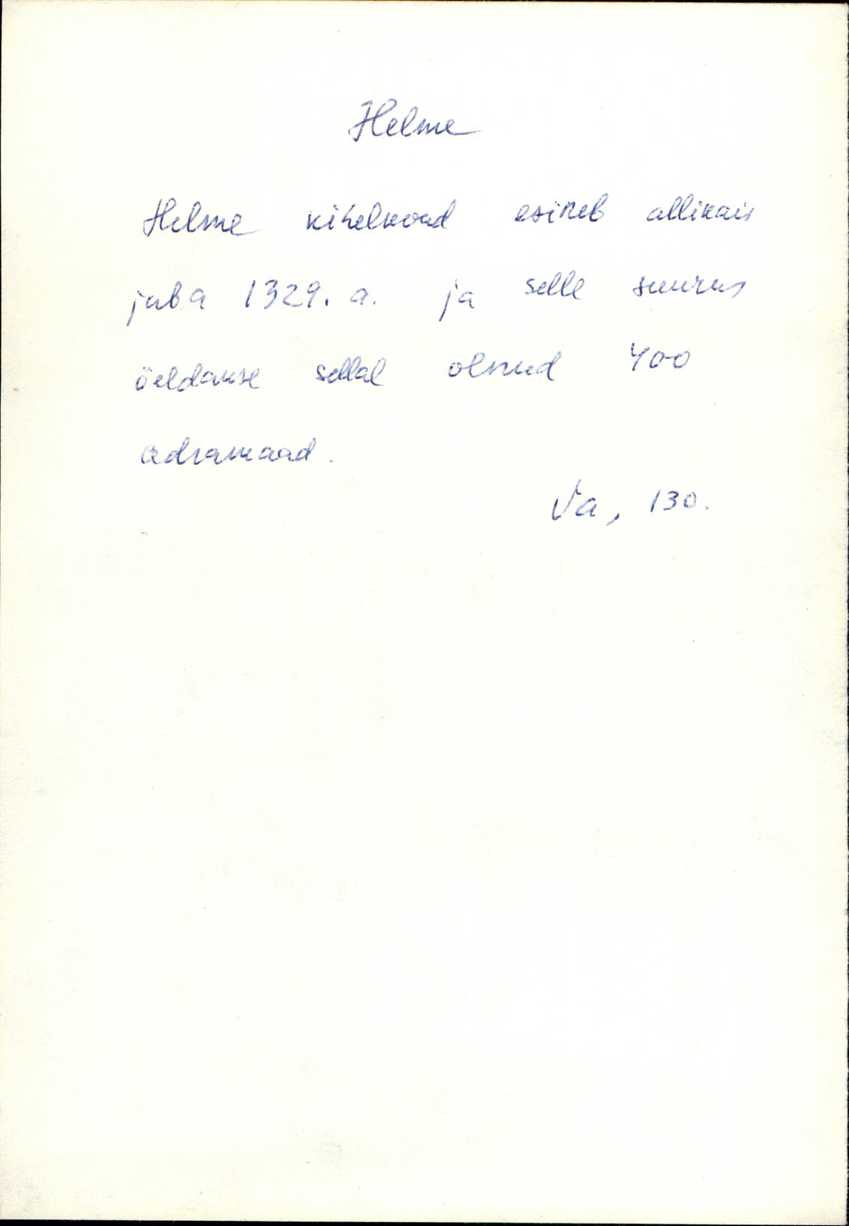 Helme
Helme kihelkond esineb allikais
juba 1329. a. ja selle suurus
öeldakse sellal olnud 400
adramaad.
Va, 130.